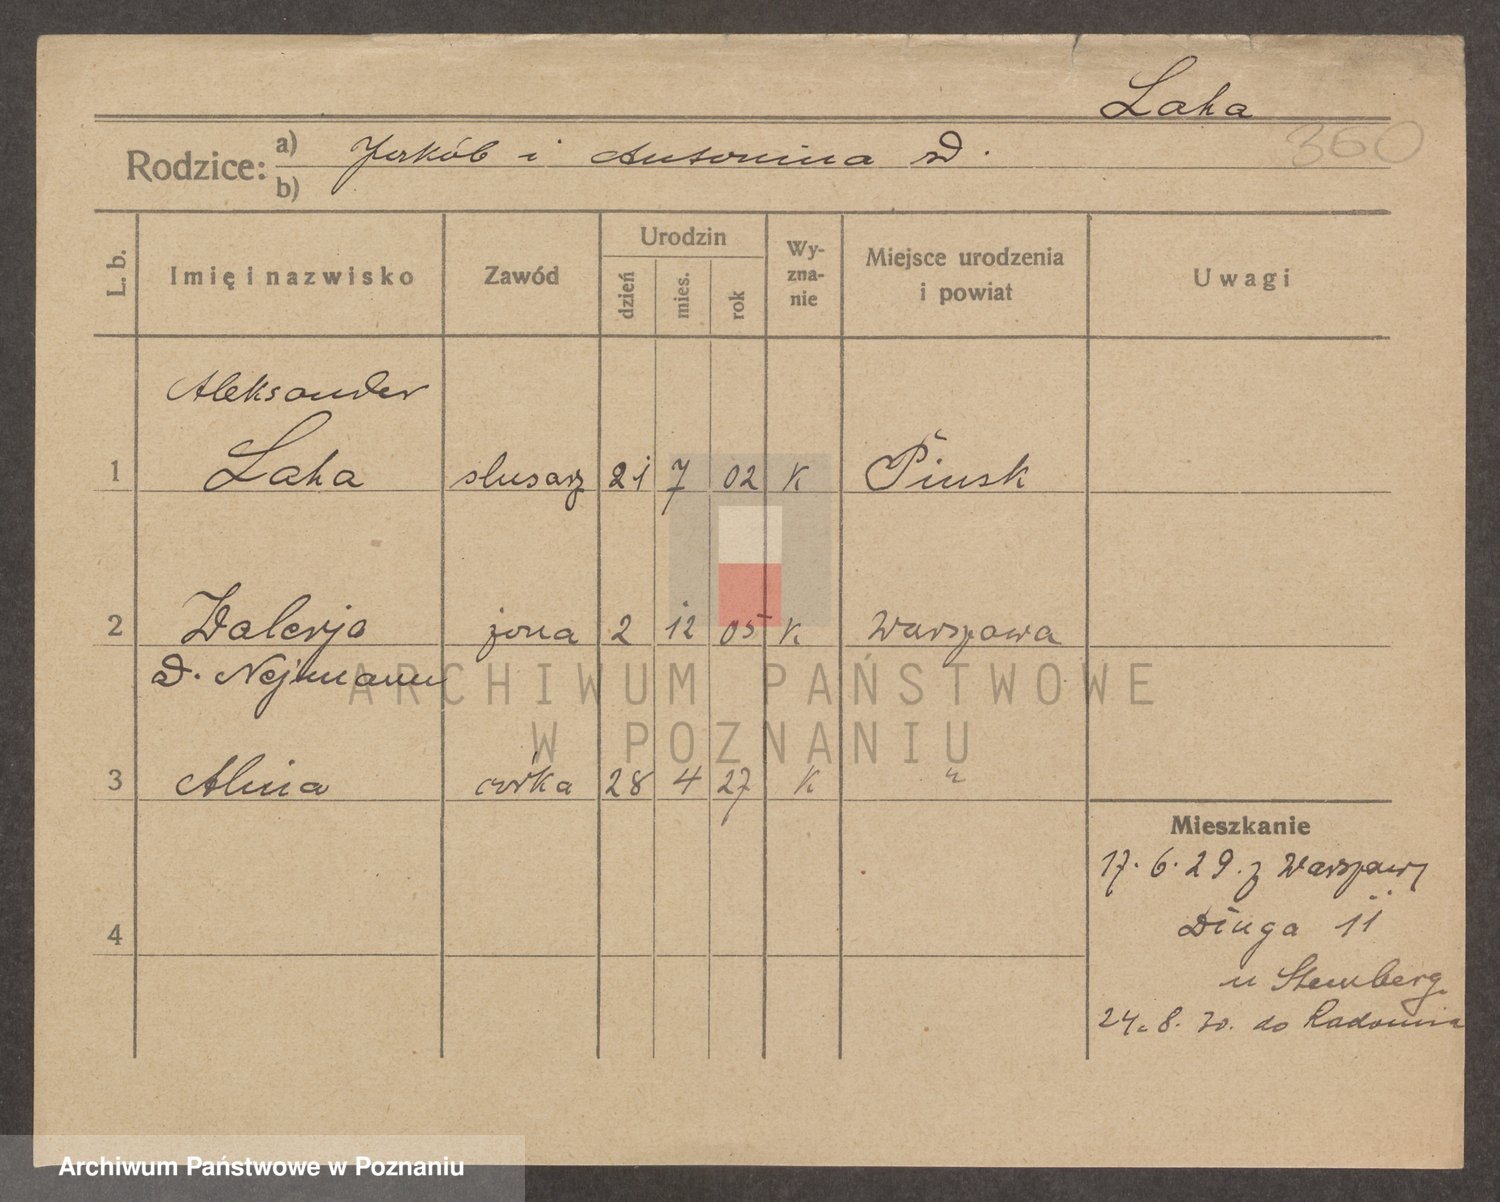 Laha
360
Rodzice: a) Jakób i Antonina D.
b)
L. b. Imię i nazwisko Zawód Urodzin dzień mies. rok Wy-zna-nie Miejsce urodzenia i powiat Uwagi
Aleksander
1 Laha slusarz 21 7 02 K Pińsk
2 Walerja żona 2 12 05 K Warszawa
D. Nejmann
ARCHIWUM PAŃSTWOWE
W POZNANIU
3 Alina córka 28 4 27 K "
Mieszkanie
17. 6. 29. z Warszawy
4 Długa 11
u Sternberg
24. 8. 30. do Radomia
Archiwum Państwowe w Poznaniu